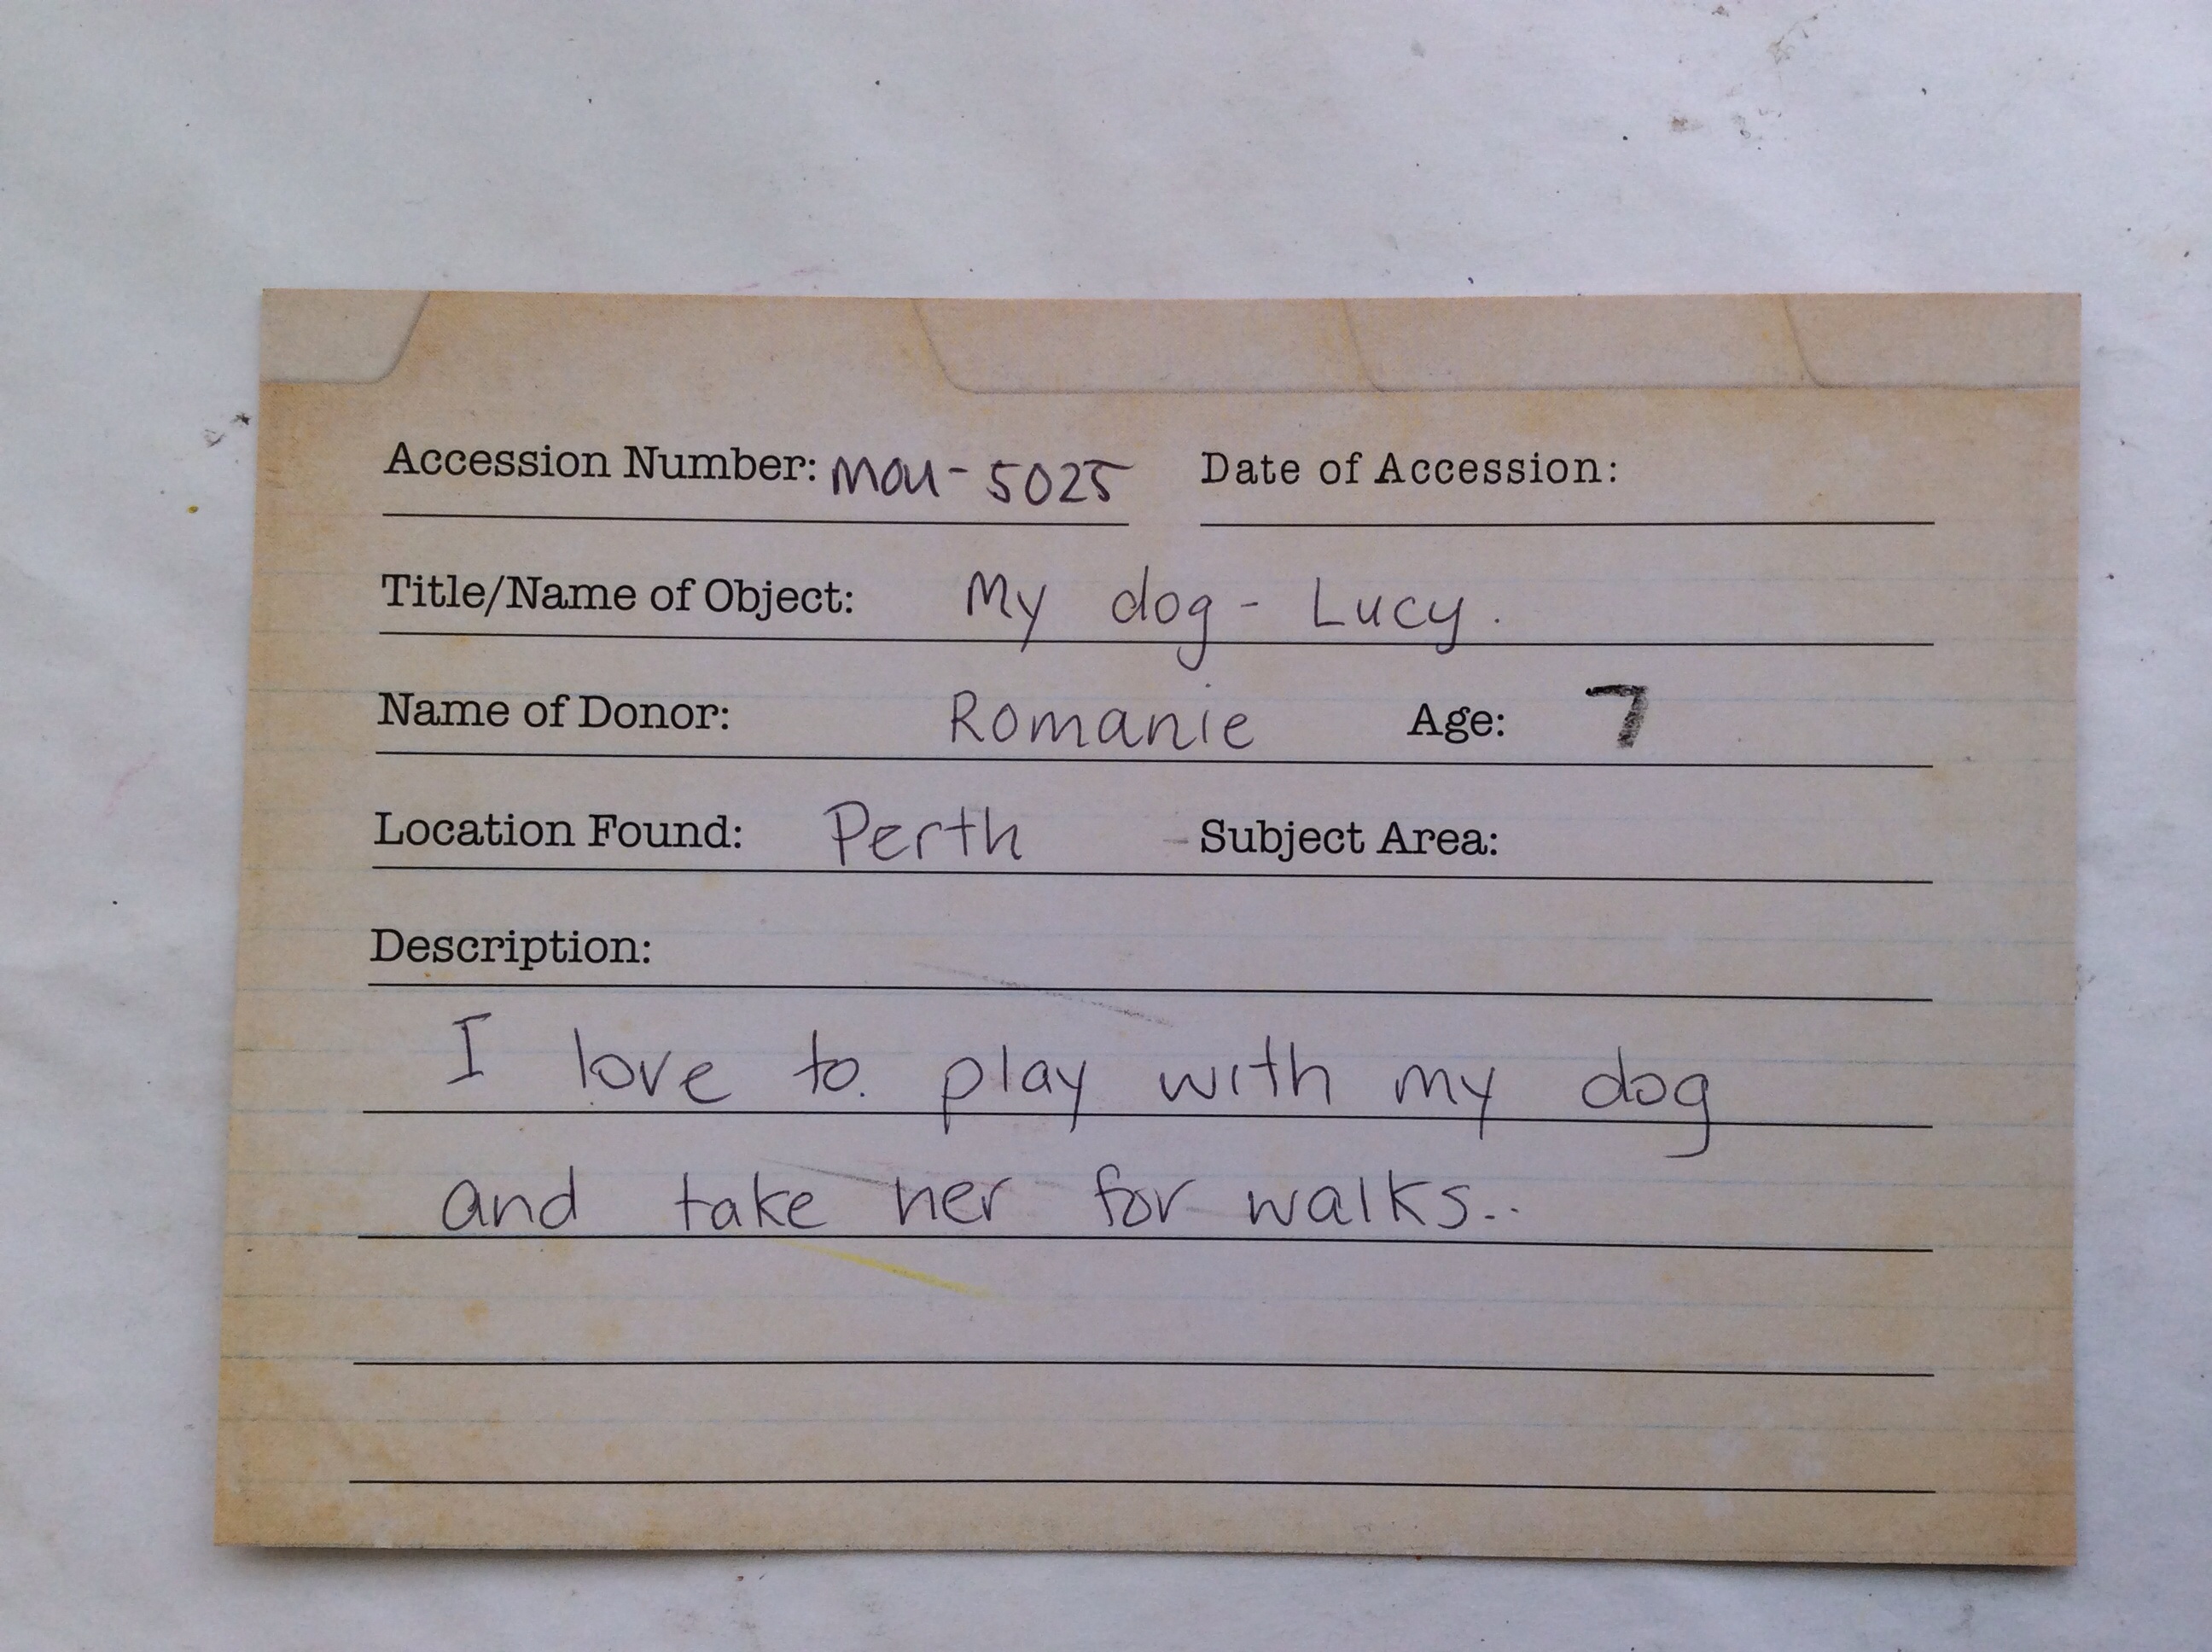 Accession Number: MOU-5025 Date of Accession:
Title/Name of Object: My dog - Lucy.
Name of Donor: Romanie Age: 7
Location Found: Perth Subject Area:
Description:
I love to play with my dog
and take her for walks..